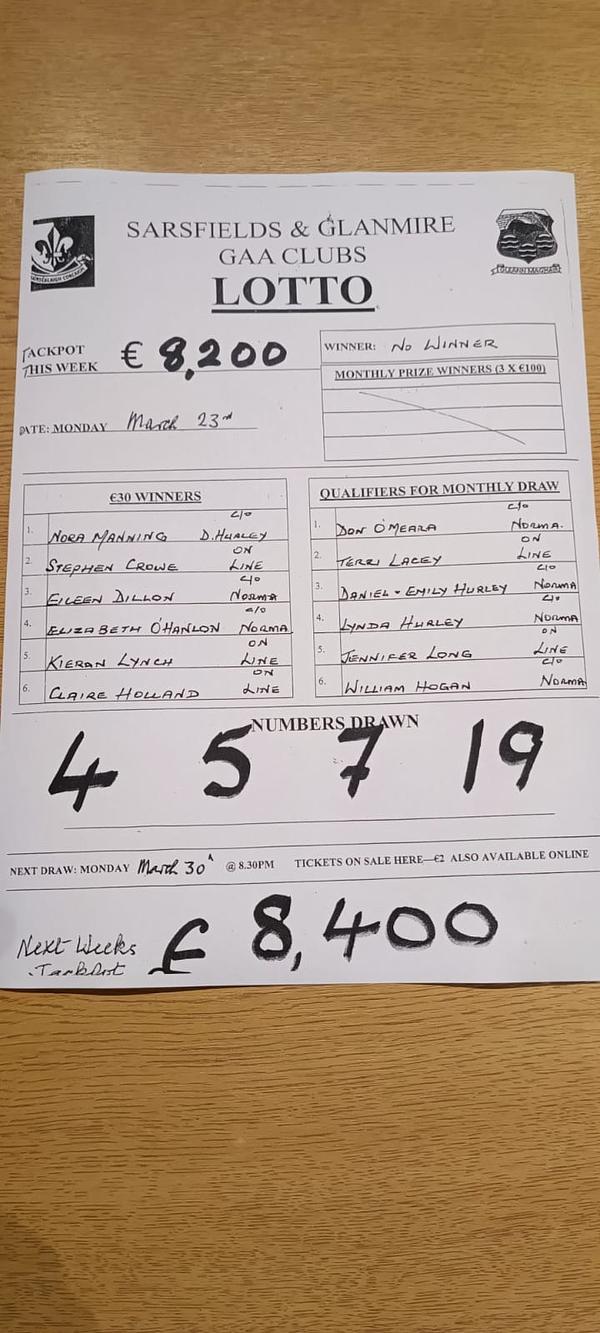 SARSFIELDS & GLANMIRE
GAA CLUBS
LOTTO
JACKPOT
THIS WEEK € 8,200
WINNER: NO WINNER
MONTHLY PRIZE WINNERS (3 X €100)
DATE: MONDAY March 23rd
€30 WINNERS
1. NORA MANNING c/o D. HURLEY
2. STEPHEN CROWE ON LINE
3. EILEEN DILLON c/o NORMA
4. ELIZABETH O'HANLON c/o NORMA
5. KIERAN LYNCH ON LINE
6. CLAIRE HOLLAND ON LINE
QUALIFIERS FOR MONTHLY DRAW
1. DON O'MEARA c/o NORMA.
2. TERRI LACEY ON LINE
3. DANIEL + EMILY HURLEY c/o NORMA
4. LYNDA HURLEY c/o NORMA
5. JENNIFER LONG ON LINE
6. WILLIAM HOGAN c/o NORMA
NUMBERS DRAWN
4 5 7 19
NEXT DRAW: MONDAY March 30th @ 8.30PM TICKETS ON SALE HERE—€2 ALSO AVAILABLE ONLINE
Next Weeks
Jackpot £ 8,400